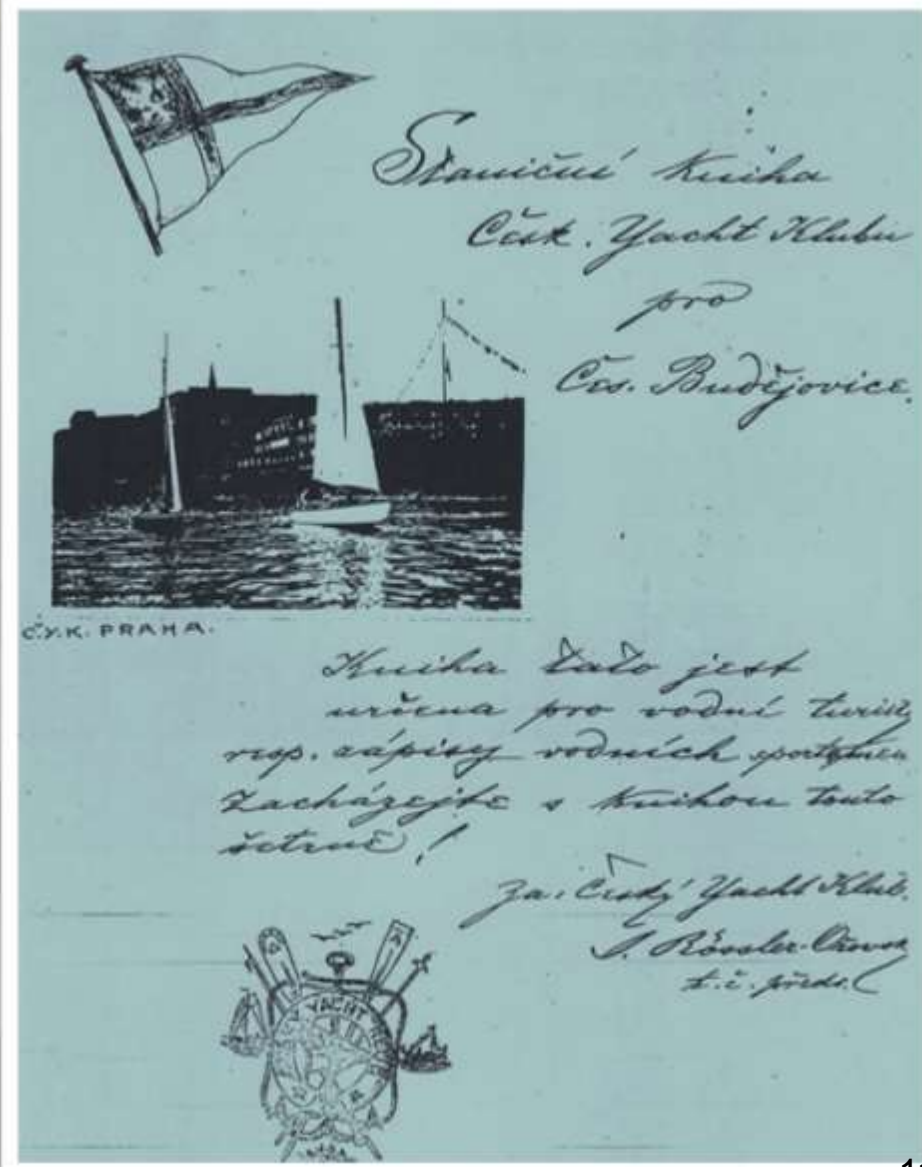 Staniční kniha
Česk. Yacht Klubu
pro
Čes. Budějovice.
Č.Y.K. PRAHA.
Kniha tato jest
určena pro vodní turisty
resp. zápisy vodních
Zacházejte s knihou touto
šetrně!
Za: Český Yacht Klub.
J. Rössler-Ořovský
t. č. předs.
YACHT